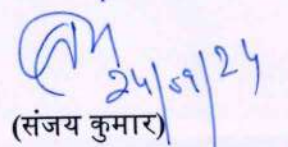 24/09/24
(संजय कुमार)